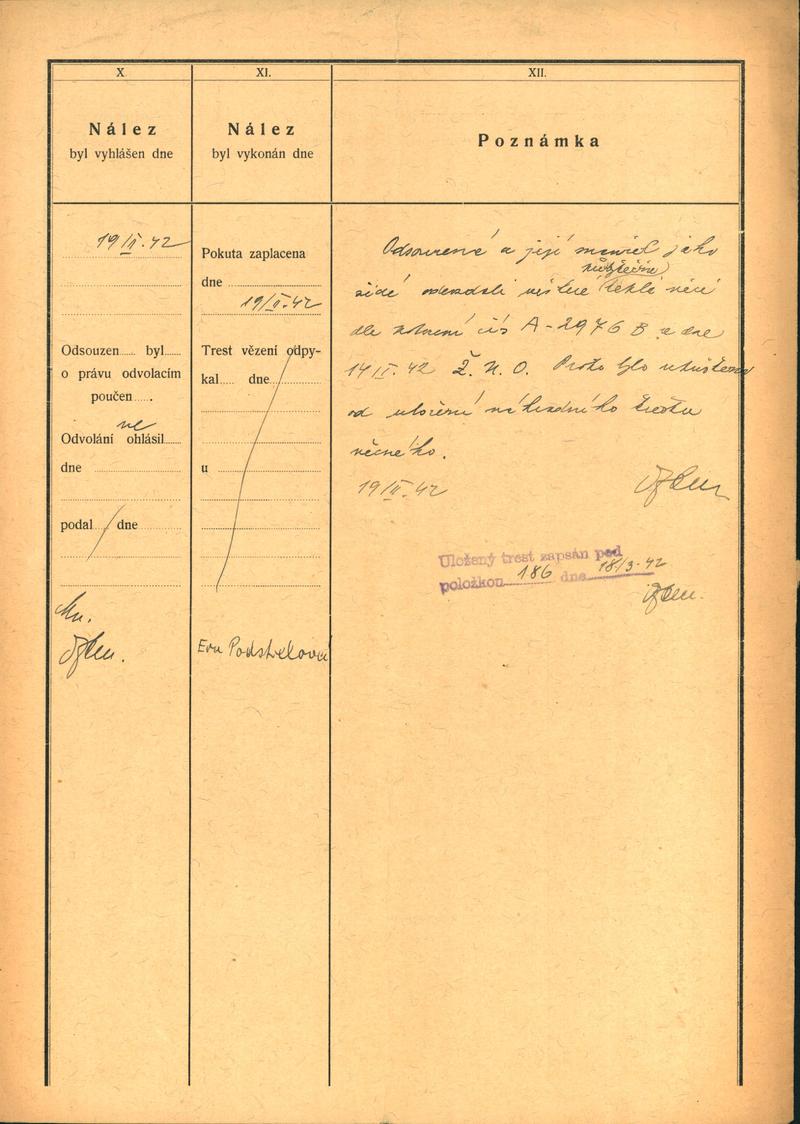 X.
Nález
byl vyhlášen dne
19/II.42
Odsouzen...... byl......
o právu odvolacím
poučen......
ne
Odvolání ohlásil......
dne
podal / dne
XI.
Nález
byl vykonán dne
Pokuta zaplacena
dne
19/II.42
Trest vězení odpy-
kal..... dne
u
Eva Podstelová
XII.
Poznámka
Odsouzená a její manžel jako
židé odevzdali
dle potvrzení čís A-2976 B a dne
14/II.42 Ž. N. O. Proto bylo upuštěno
od uložení náhradního trestu
věcného.
19/II.42
Uložený trest zapsán pod
položkou 186 dne 18/3.42